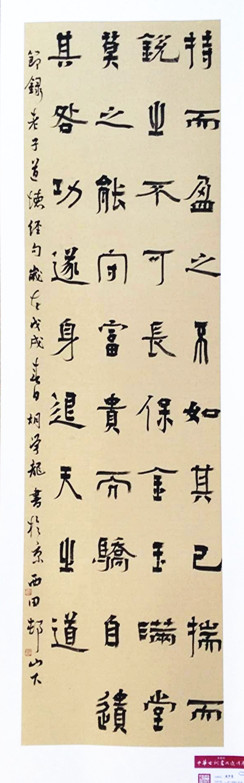 持而盈之不如其已揣而
銳之不可長保金玉滿堂
莫之能守富貴而驕自遺
其咎功遂身退天之道
節錄老子道德經句歲在戊戌春日龍書於京西田邨山下